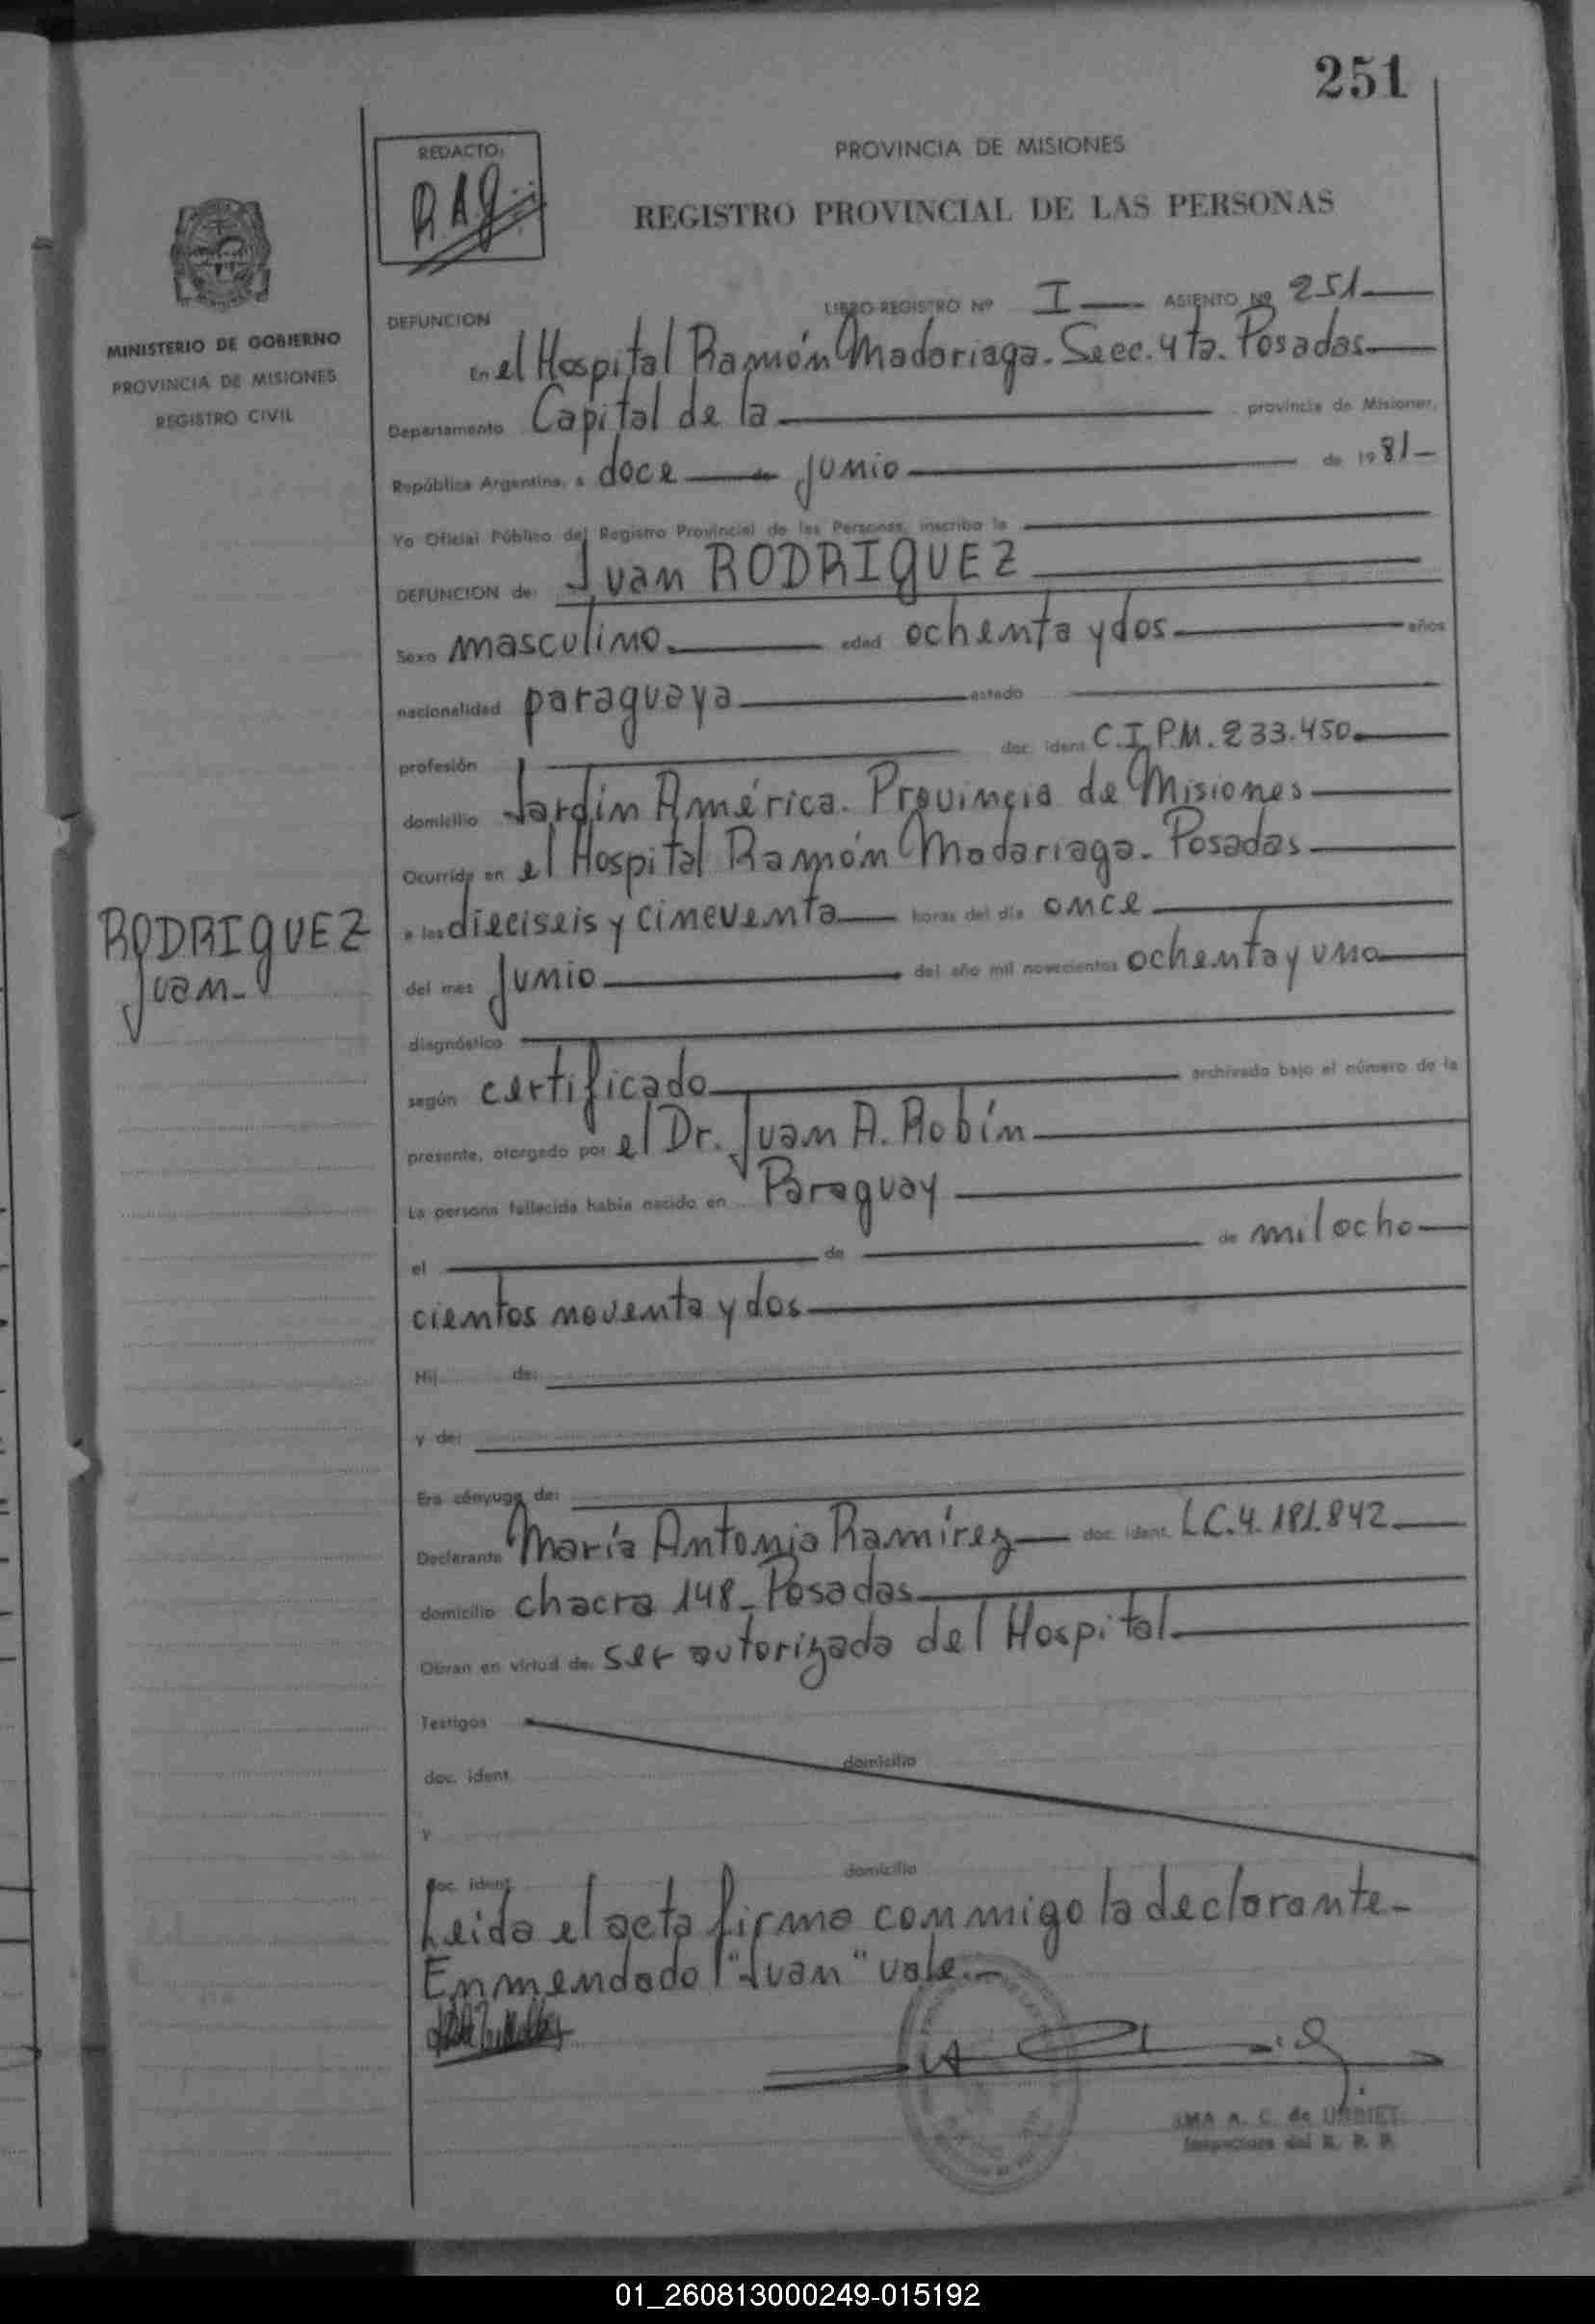 251
REDACTO:
RAG
PROVINCIA DE MISIONES
REGISTRO PROVINCIAL DE LAS PERSONAS
MINISTERIO DE GOBIERNO
PROVINCIA DE MISIONES
REGISTRO CIVIL
DEFUNCION
LIBRO-REGISTRO Nº I ASIENTO Nº 251
En el Hospital Ramón Madariaga. Secc. 4ta. Posadas
Departamento Capital de la provincia de Misiones,
República Argentina, a doce de junio de 1981
Yo Oficial Público del Registro Provincial de las Personas, inscribo la
DEFUNCION de: Juan RODRIGUEZ
Sexo masculino. edad ochenta y dos años
nacionalidad paraguaya estado
profesión doc. ident. C.I.P.M. 233.450.
domicilio Jardín América. Provincia de Misiones
Ocurrida en el Hospital Ramón Madariaga. Posadas
a las dieciseis y cincuenta horas del día once
del mes junio del año mil novecientos ochenta y uno
RODRIGUEZ
Juan.
diagnóstico
según certificado archivado bajo el número de la
presente, otorgado por el Dr. Juan A. Robín
La persona fallecida había nacido en Paraguay
el de de mil ocho
cientos noventa y dos
Hij de:
y de:
Era cónyuge de:
Declarante María Antonia Ramírez doc. ident. L.C. 4.181.842
domicilio chacra 148. Posadas
Obran en virtud de: ser autorizada del Hospital.
Testigos
doc. ident. domicilio
y
doc. ident. domicilio
Leida el acta firma conmigo la declarante.
Enmendado "Juan" vale.
A. C. de
Inspectora del R. P. P.
01_260813000249-015192